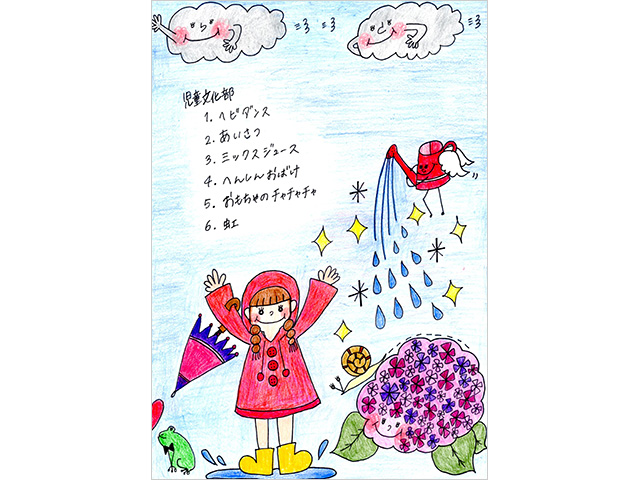 児童文化部
1. ヘビダンス
2. あいさつ
3. ミックスジュース
4. へんしんおばけ
5. おもちゃのチャチャチャ
6. 虹